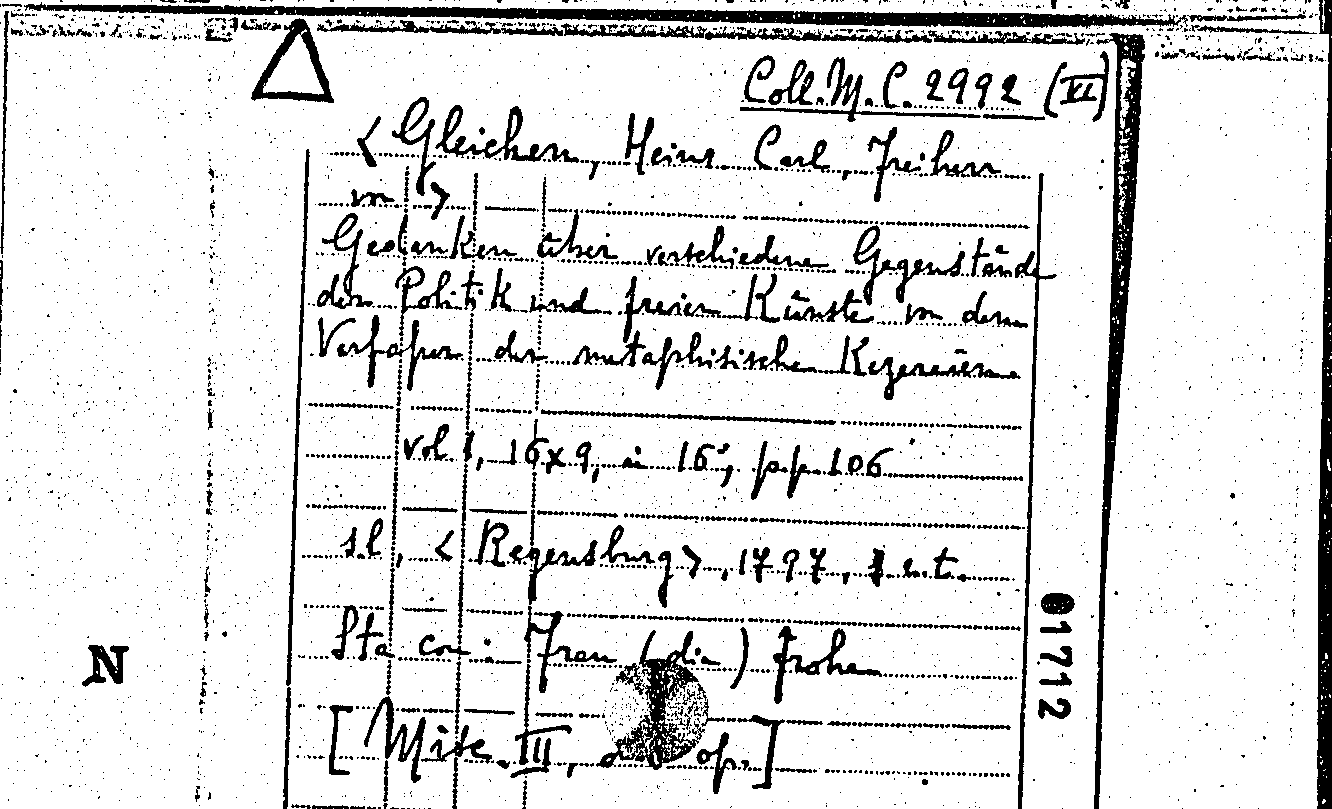 Coll. M. C. 2992 (VI)
< Gleichen, Heinr. Carl, Freiherr
von >
Gedanken über verschiedene Gegenstände
der Politik und freien Künste von dem
Verfasser der metaphisische Kezereien.
vol 1, 16x9, in 16°, pp. 106
s.l., < Regensburg >, 1797, s.e.t.
Sta con: Frau (die) Frohe
[Misc. III, op.]
01712
N